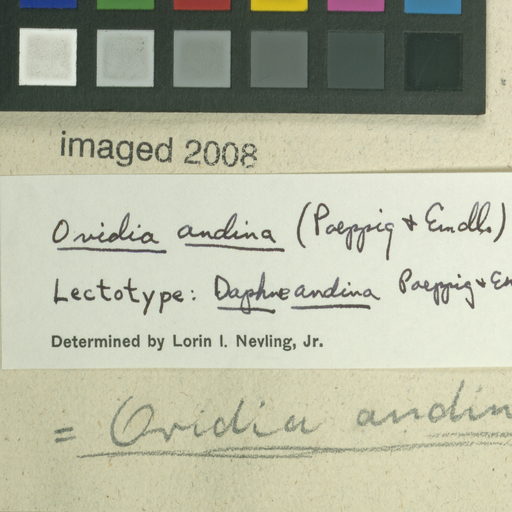 imaged 2008
Ovidia andina (Poeppig & Endl.)
Lectotype: Daphne andina Poeppig & En
Determined by Lorin I. Nevling, Jr.
= Ovidia andin